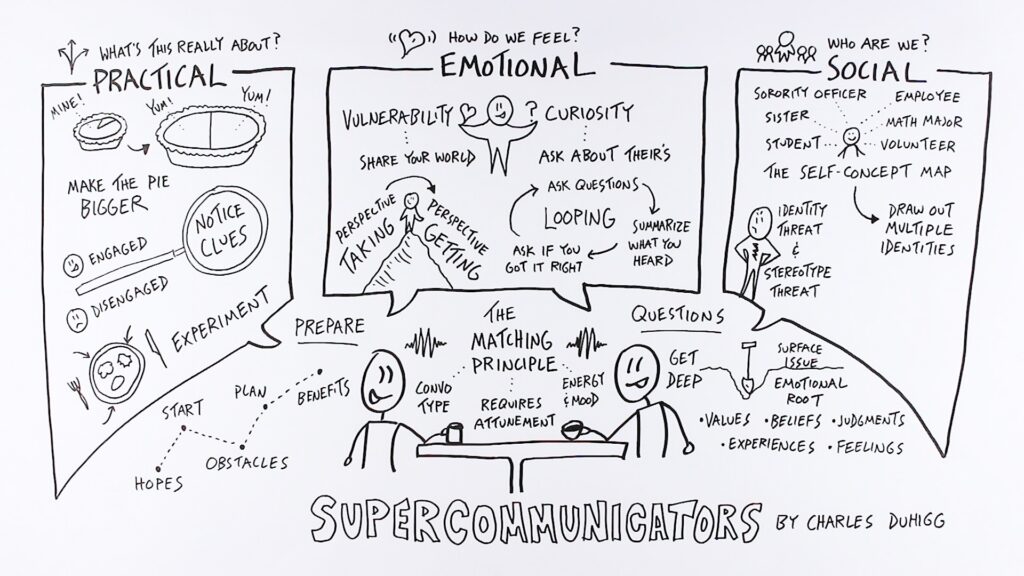 WHAT'S THIS REALLY ABOUT?
PRACTICAL
MINE!
YUM!
YUM!
MAKE THE PIE
BIGGER
NOTICE
CLUES
ENGAGED
DISENGAGED
EXPERIMENT
HOW DO WE FEEL?
EMOTIONAL
VULNERABILITY
? CURIOSITY
SHARE YOUR WORLD
ASK ABOUT THEIR'S
PERSPECTIVE
TAKING
PERSPECTIVE
GETTING
ASK QUESTIONS
LOOPING
SUMMARIZE
WHAT YOU
HEARD
ASK IF YOU
GOT IT RIGHT
WHO ARE WE?
SOCIAL
SORORITY OFFICER
EMPLOYEE
SISTER
MATH MAJOR
STUDENT
VOLUNTEER
THE SELF-CONCEPT MAP
IDENTITY
THREAT
&
STEREOTYPE
THREAT
DRAW OUT
MULTIPLE
IDENTITIES
PREPARE
HOPES
START
OBSTACLES
PLAN
BENEFITS
THE
MATCHING
PRINCIPLE
CONVO
TYPE
REQUIRES
ATTUNEMENT
ENERGY
& MOOD
QUESTIONS
GET
DEEP
SURFACE
ISSUE
EMOTIONAL
ROOT
• VALUES • BELIEFS • JUDGMENTS
• EXPERIENCES • FEELINGS
SUPERCOMMUNICATORS BY CHARLES DUHIGG